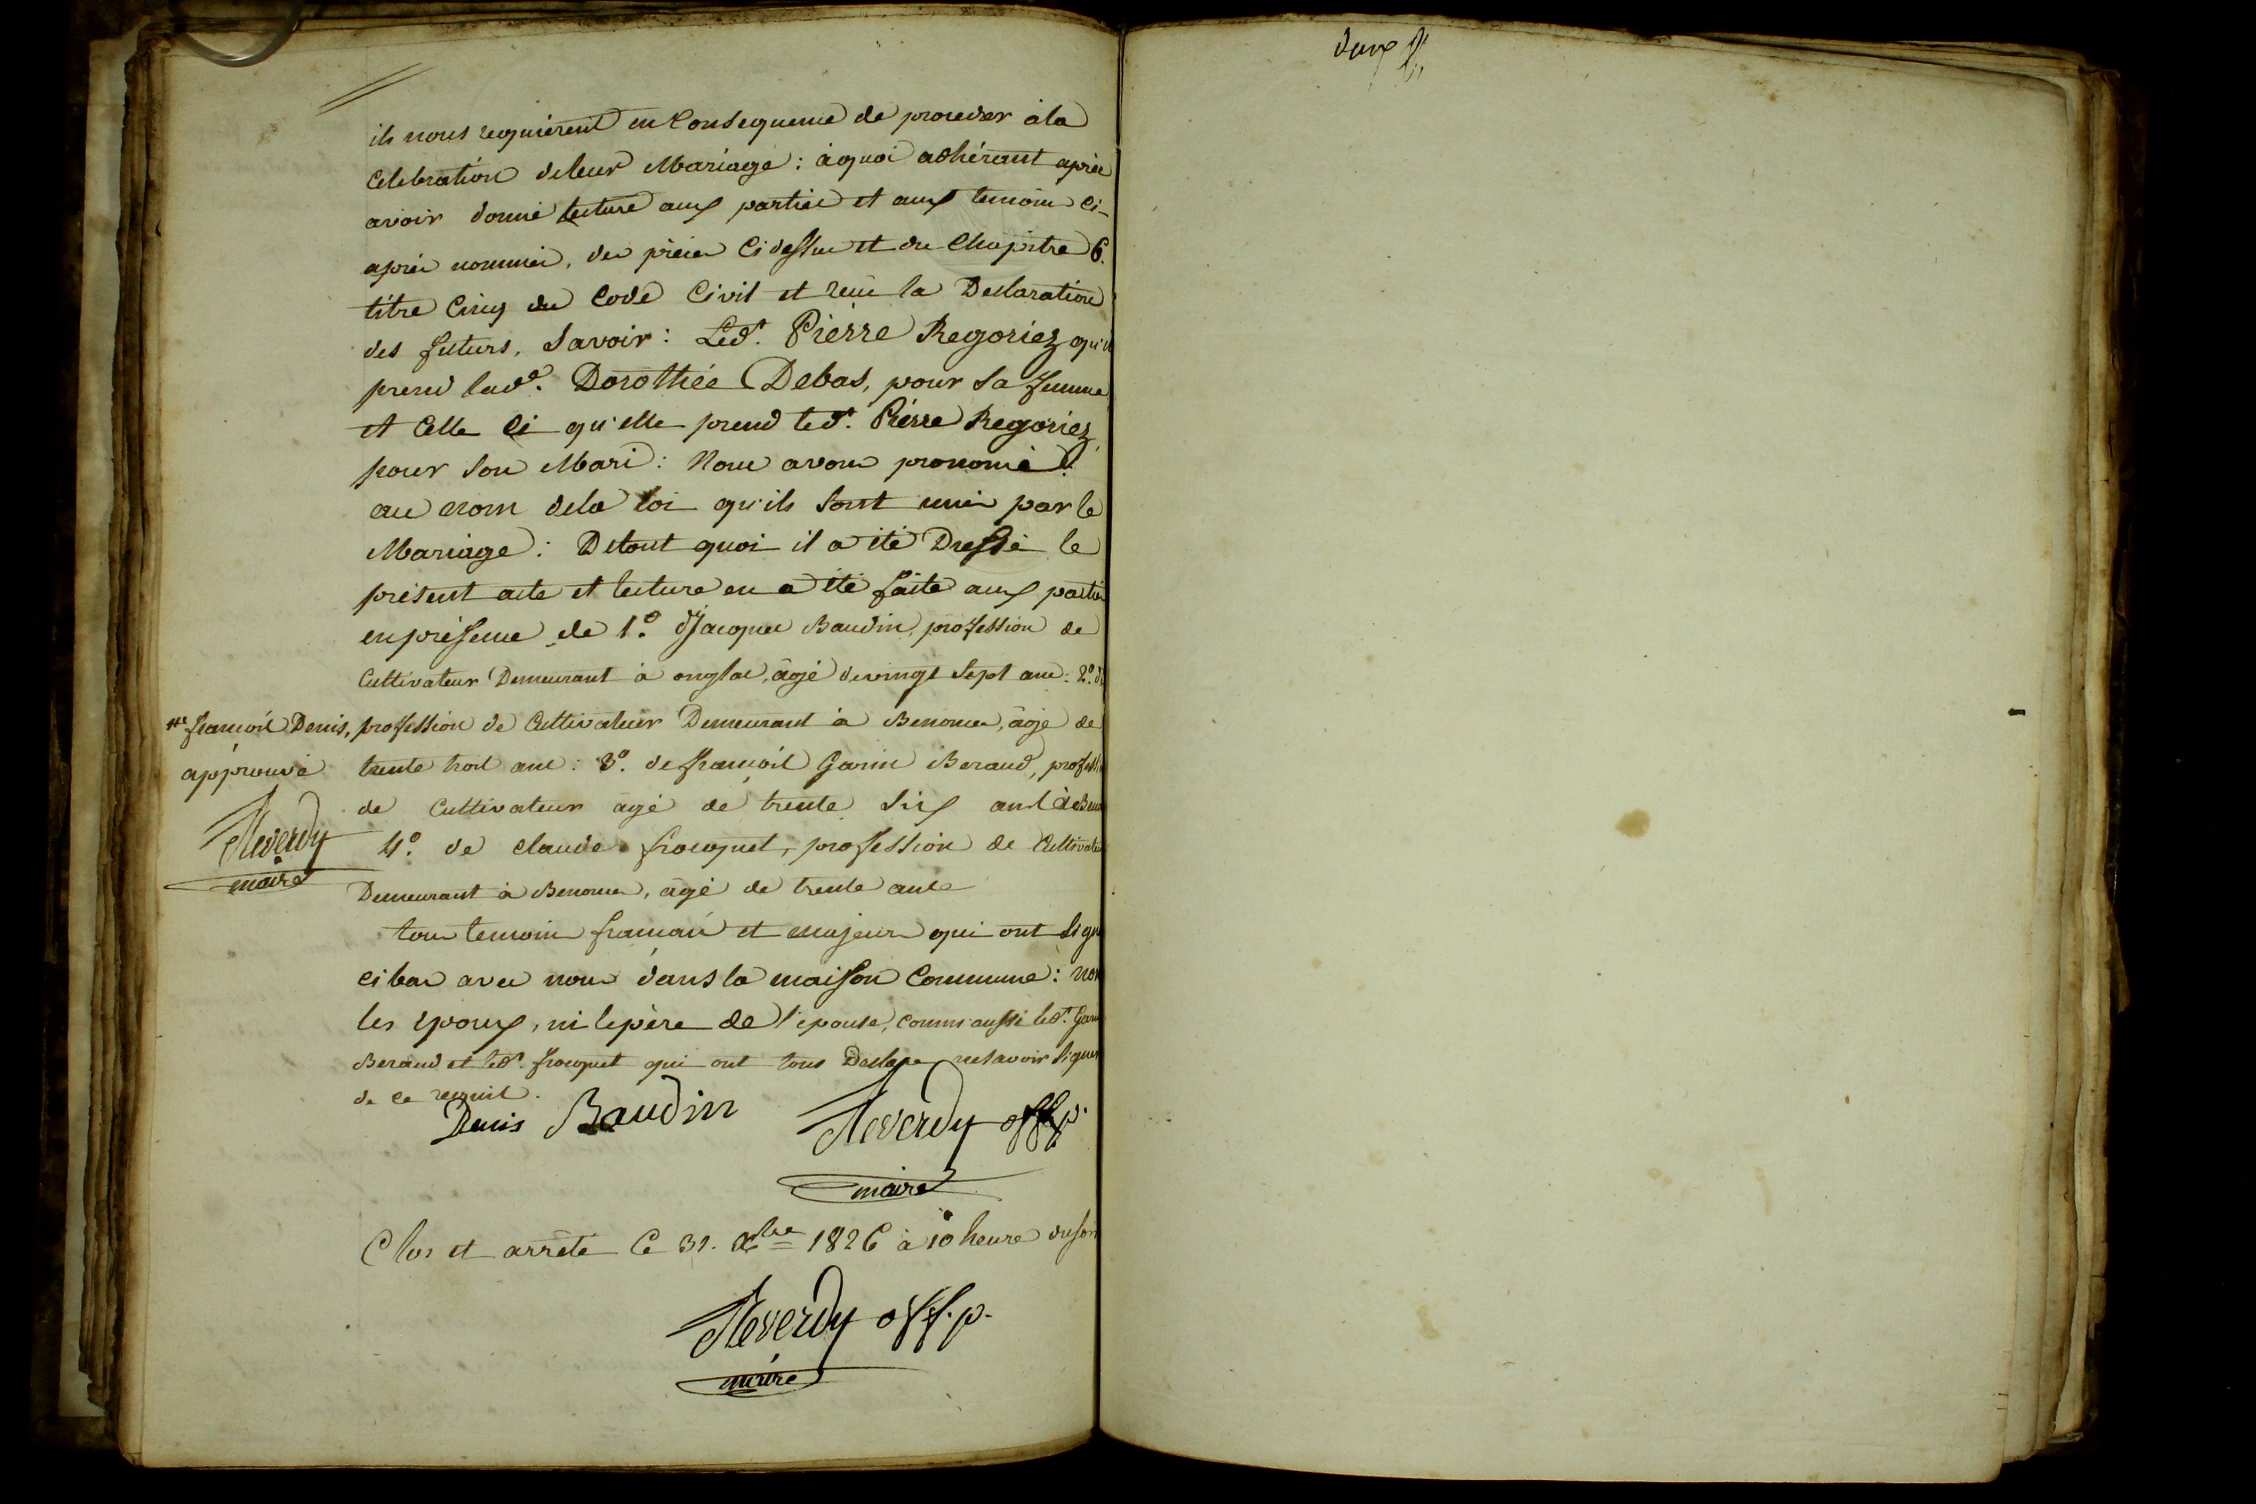 ils nous requièrent en Consequence de proceder à la
Celebration de leur Mariage : à quoi adhérant après
avoir donné lecture aux parties et aux temoins ci-
après nommés, des pièces ci dessus et du Chapitre 6.
titre Cinq du Code Civil et reçu la Declaration
des futurs, Savoir : Led.t Pierre Regoriez qu'il
prend lad.e Dorothée Debas, pour sa femme
et Celle ci qu'elle prend led.t Pierre Regoriez,
pour son Mari : Nous avons prononcé
au nom de la loi qu'ils sont unis par le
Mariage : De tout quoi il a été Dressé le
présent acte et lecture en a été faite aux parties
en présence de 1.o Jacques Baudin, profession de
Cultivateur Demeurant à onglas, âgé de vingt Sept ans : 2.o de
françois Denis, profession de Cultivateur Demeurant à Benonce, âgé de
approuvé
trente trois ans : 3.o de françois Garin Beraud, profession
de Cultivateur âgé de trente Six ans à
Reverdy
maire
4.o de claude frocquet, profession de Cultivateur
Demeurant à Benonce, âgé de trente ans
tous temoins français et majeurs qui ont Signé
ci bas avec nous dans la maison Commune : non
les epoux, ni le père de l'epouse, comm'aussi led.t Garin
Beraud et led.t frocquet qui ont tous Declaré ne savoir signer
de ce requis.
Denis Baudin Reverdy off. p.
maire
Clos et arrêté Ce 31. Xbre 1826 à 10 heures du soir
Reverdy off. p.
maire
deux